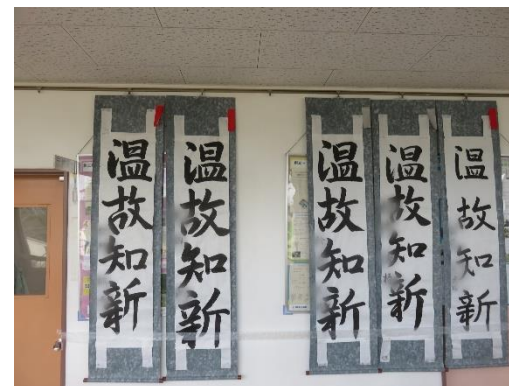 温故知新
温故知新
温故知新
温故知新
温故知新